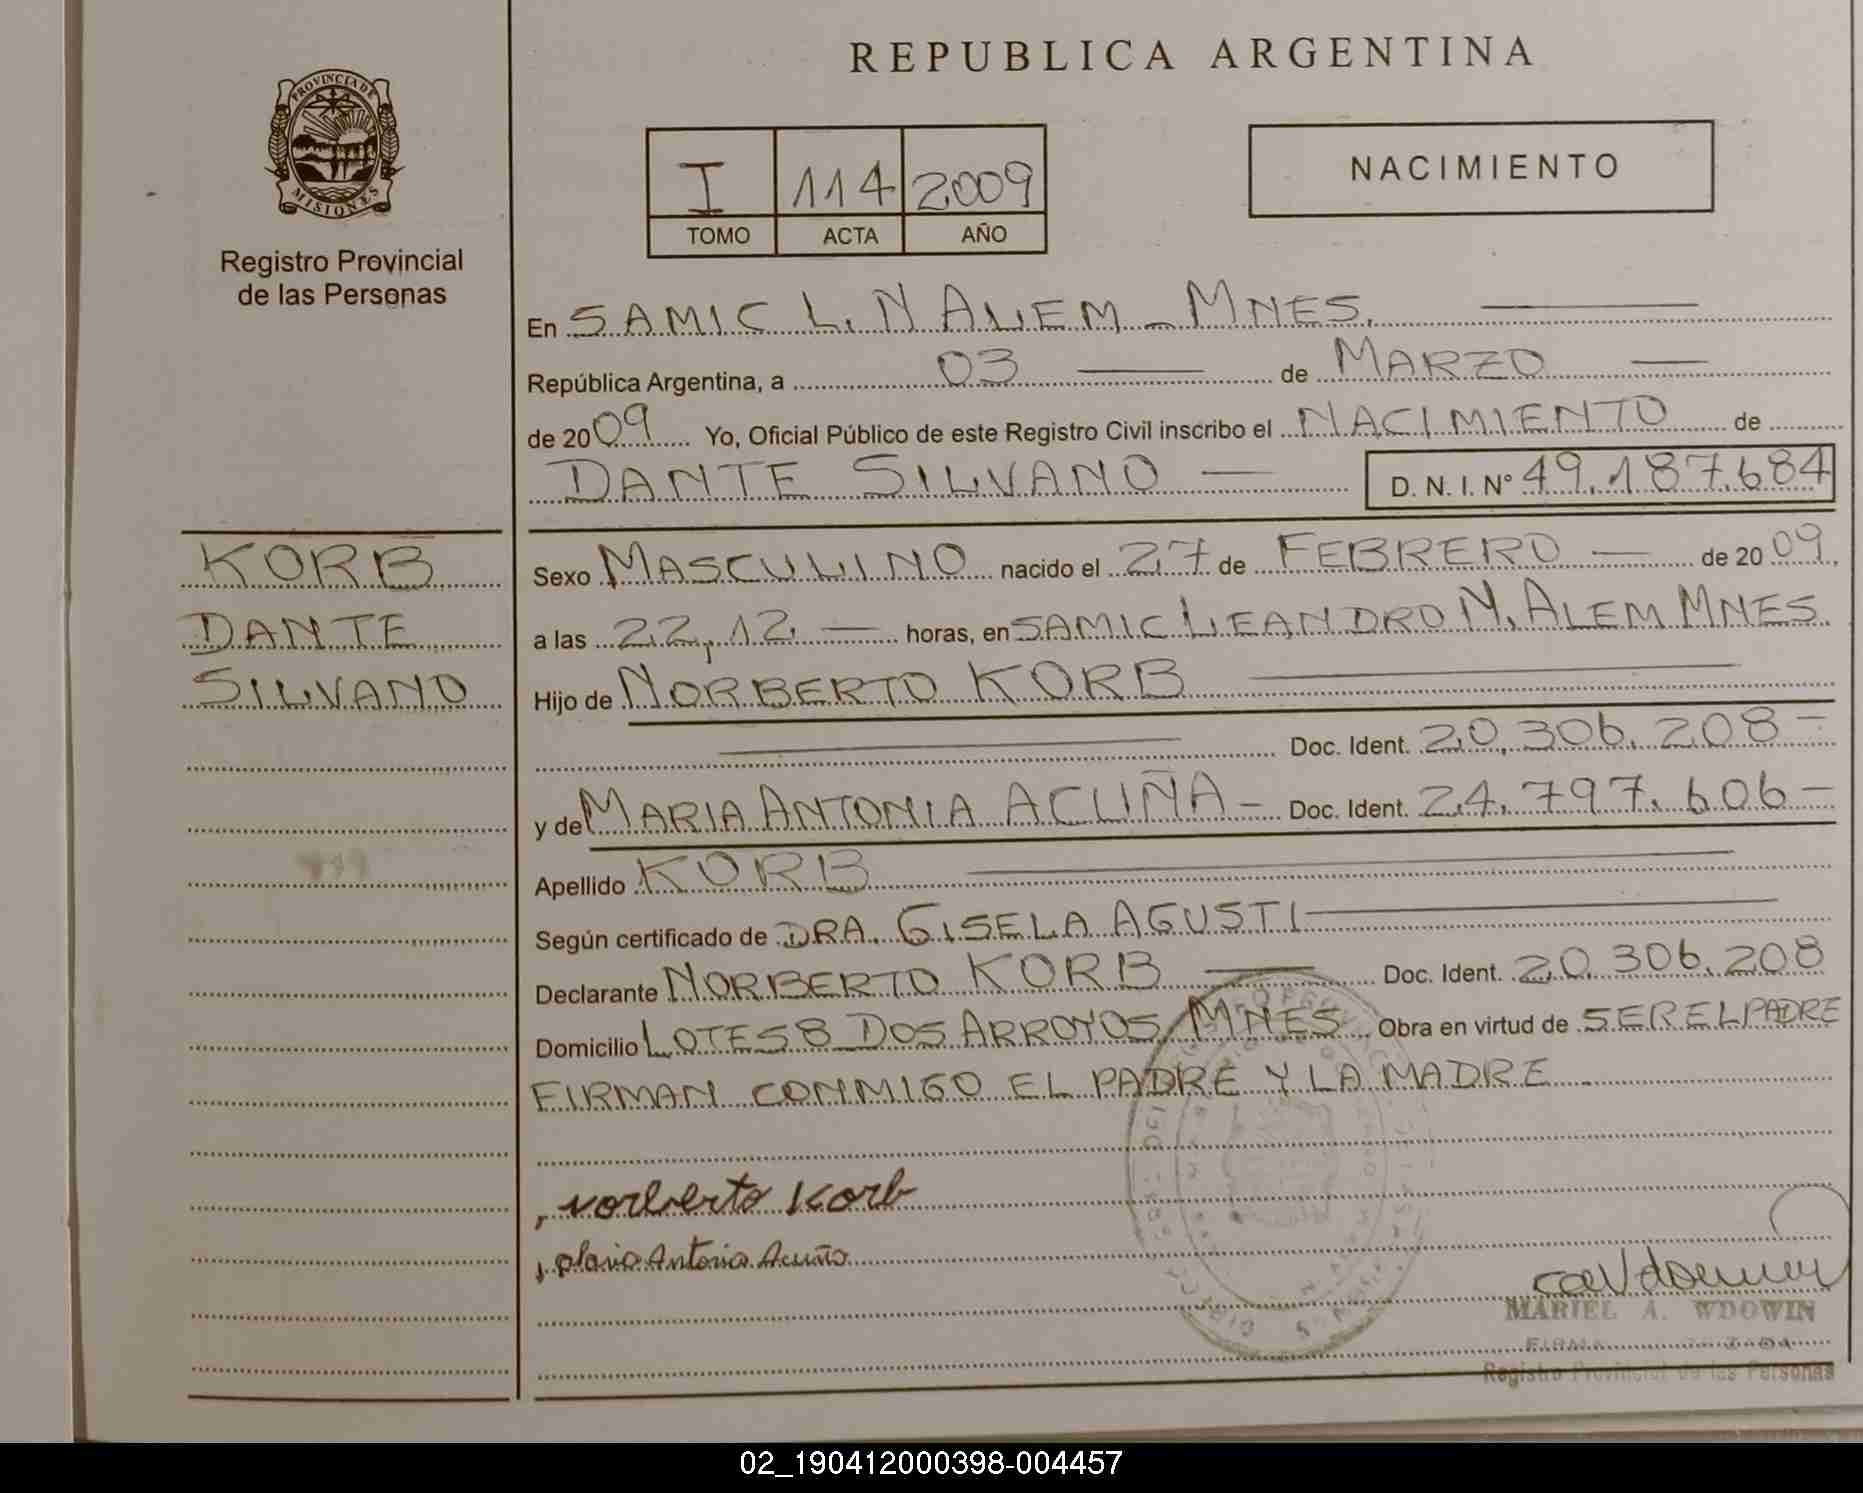 REPUBLICA ARGENTINA
PROVINCIA DE
MISIONES
Registro Provincial
de las Personas
I 114 2009
TOMO ACTA AÑO
NACIMIENTO
En SAMIC L. N ALEM - MNES.
República Argentina, a 03 de MARZO
de 2009 Yo, Oficial Público de este Registro Civil inscribo el NACIMIENTO de
DANTE SILVANO D. N. I. N° 49.187.684
KORB
DANTE
SILVANO
Sexo MASCULINO nacido el 27 de FEBRERO de 2009
a las 22,12 horas, en SAMIC LEANDRO N. ALEM MNES.
Hijo de NORBERTO KORB
Doc. Ident. 20.306.208
y de MARIA ANTONIA ACUÑA Doc. Ident. 24.797.606
Apellido KORB
Según certificado de DRA. GISELA AGUSTI
Declarante NORBERTO KORB Doc. Ident. 20.306.208
Domicilio LOTE 58 DOS ARROYOS MNES Obra en virtud de SER EL PADRE
FIRMAN CONMIGO EL PADRE Y LA MADRE
norberto Korb
Maria Antonia Acuña
MARIEL A. WDOWIN
Registro Provincial de las Personas
02_190412000398-004457